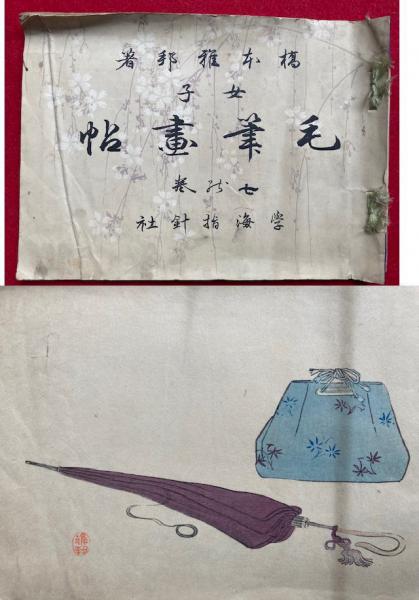 橋本雅邦著
女子
毛筆畫帖
七
卷
学海指針社